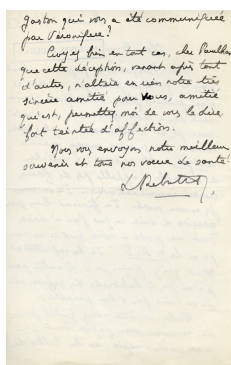 Gaston qui vous a été communiquée
par Véronique?
Croyez bien en tout cas, cher Paulhan
que cette déception, venant après tant
d'autres, n'altère en rien notre très
sincère amitié pour vous, amitié
qui est, permettez moi de vous le dire,
fort teintée d'affection.
Nous vous envoyons notre meilleur
souvenir et tous nos vœux de santé.